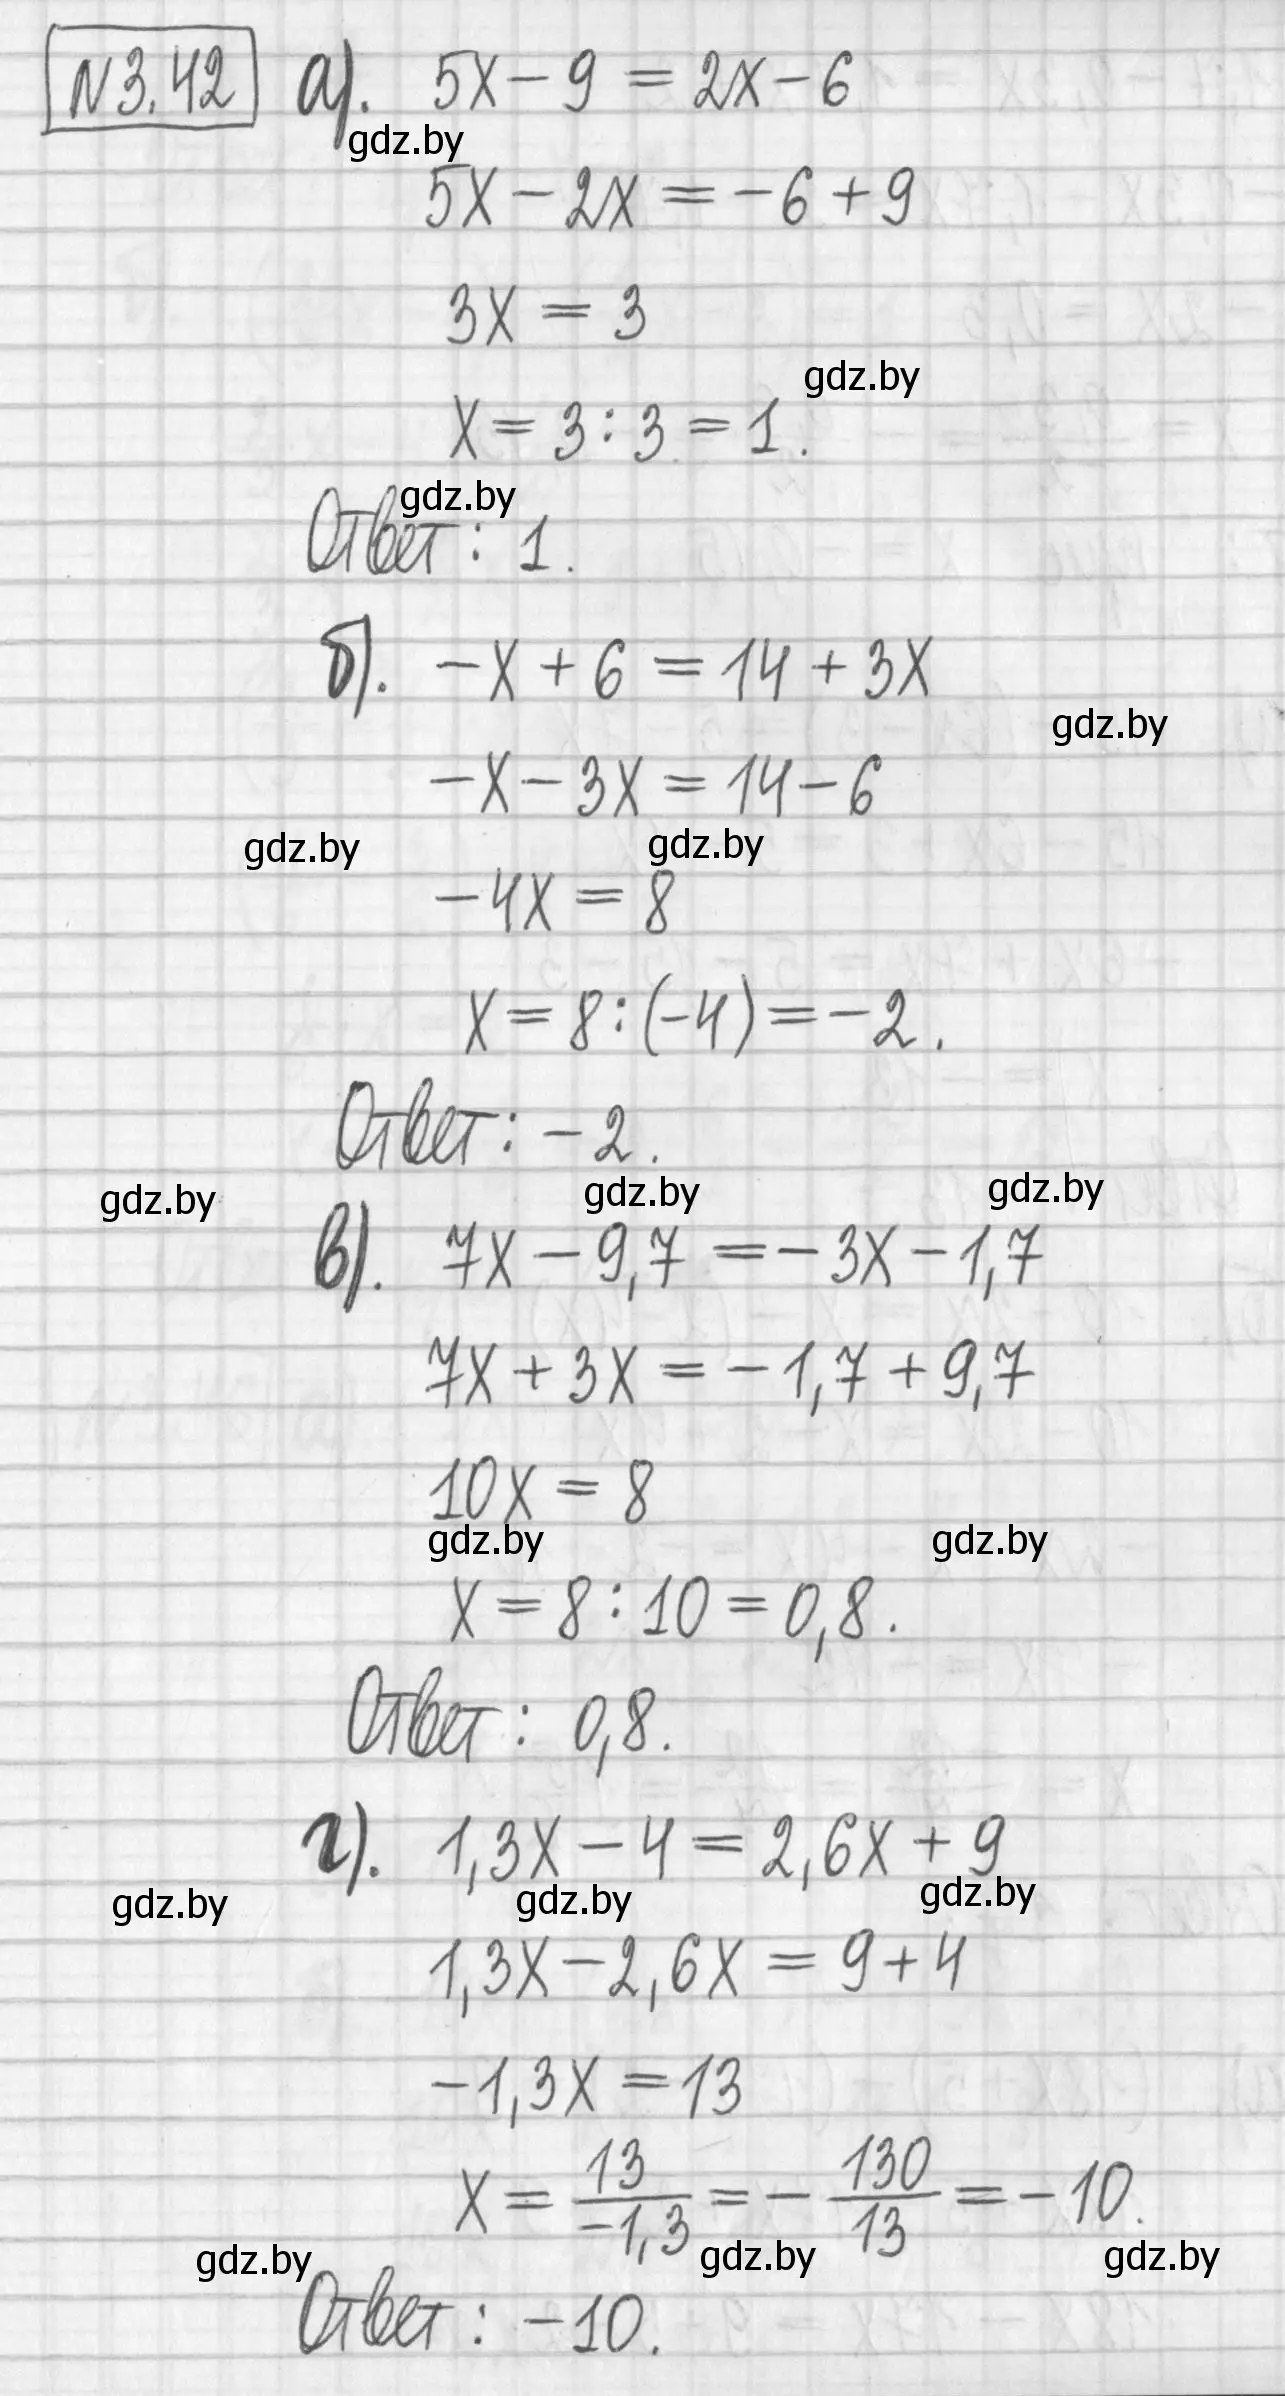 N3.42 а). 5x - 9 = 2x - 6
gdz.by
5x - 2x = -6 + 9
3x = 3
gdz.by
x = 3 : 3 = 1.
gdz.by
Ответ: 1.
б). -x + 6 = 14 + 3x
gdz.by
-x - 3x = 14 - 6
gdz.by gdz.by
-4x = 8
x = 8 : (-4) = -2.
Ответ: -2.
gdz.by gdz.by gdz.by
в). 7x - 9,7 = -3x - 1,7
7x + 3x = -1,7 + 9,7
10x = 8
gdz.by gdz.by
x = 8 : 10 = 0,8.
Ответ: 0,8.
г). 1,3x - 4 = 2,6x + 9
gdz.by gdz.by gdz.by
1,3x - 2,6x = 9 + 4
-1,3x = 13
x = 13/-1,3 = - 130/13 = -10.
gdz.by gdz.by gdz.by
Ответ: -10.